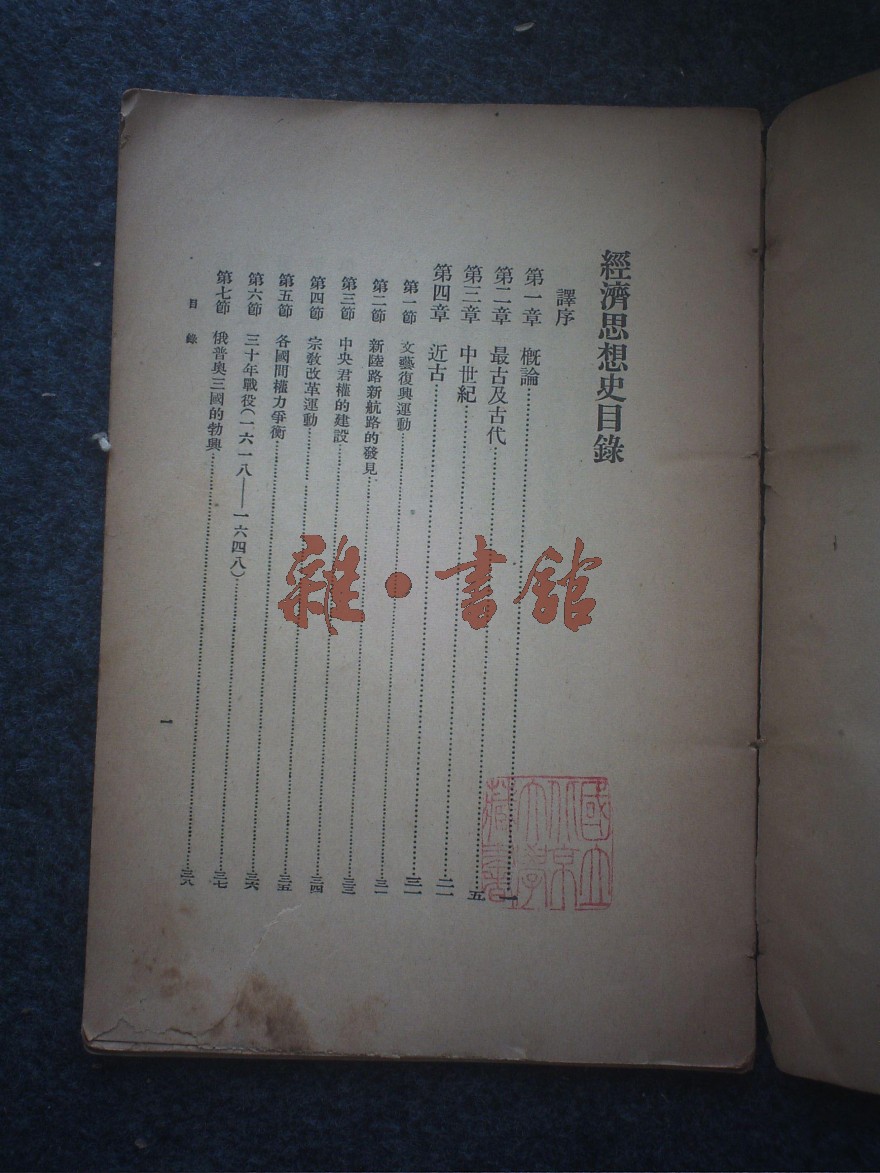 經濟思想史目錄
譯序
第一章 概論……一
第二章 最古及古代……五
第三章 中世紀……二一
第四章 近古……三一
第一節 文藝復興運動……三一
第二節 新陸路新航路的發見……三二
第三節 中央君權的建設……三三
第四節 宗教改革運動……三四
第五節 各國間權力爭衡……三五
第六節 三十年戰役(一六一八——一六四八)……三六
第七節 俄普奧三國的勃興……三七
三八
目錄
一
雜·書館
國立北京大學藏書